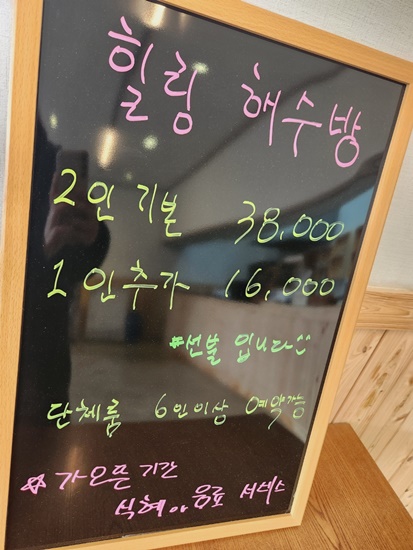 힐링 해수방
2인 기본 38,000
1인추가 16,000
*선불 입니다^^
단체룸 6인이상 예약가능
☆ 가오픈 기간
식혜or음료 서비스